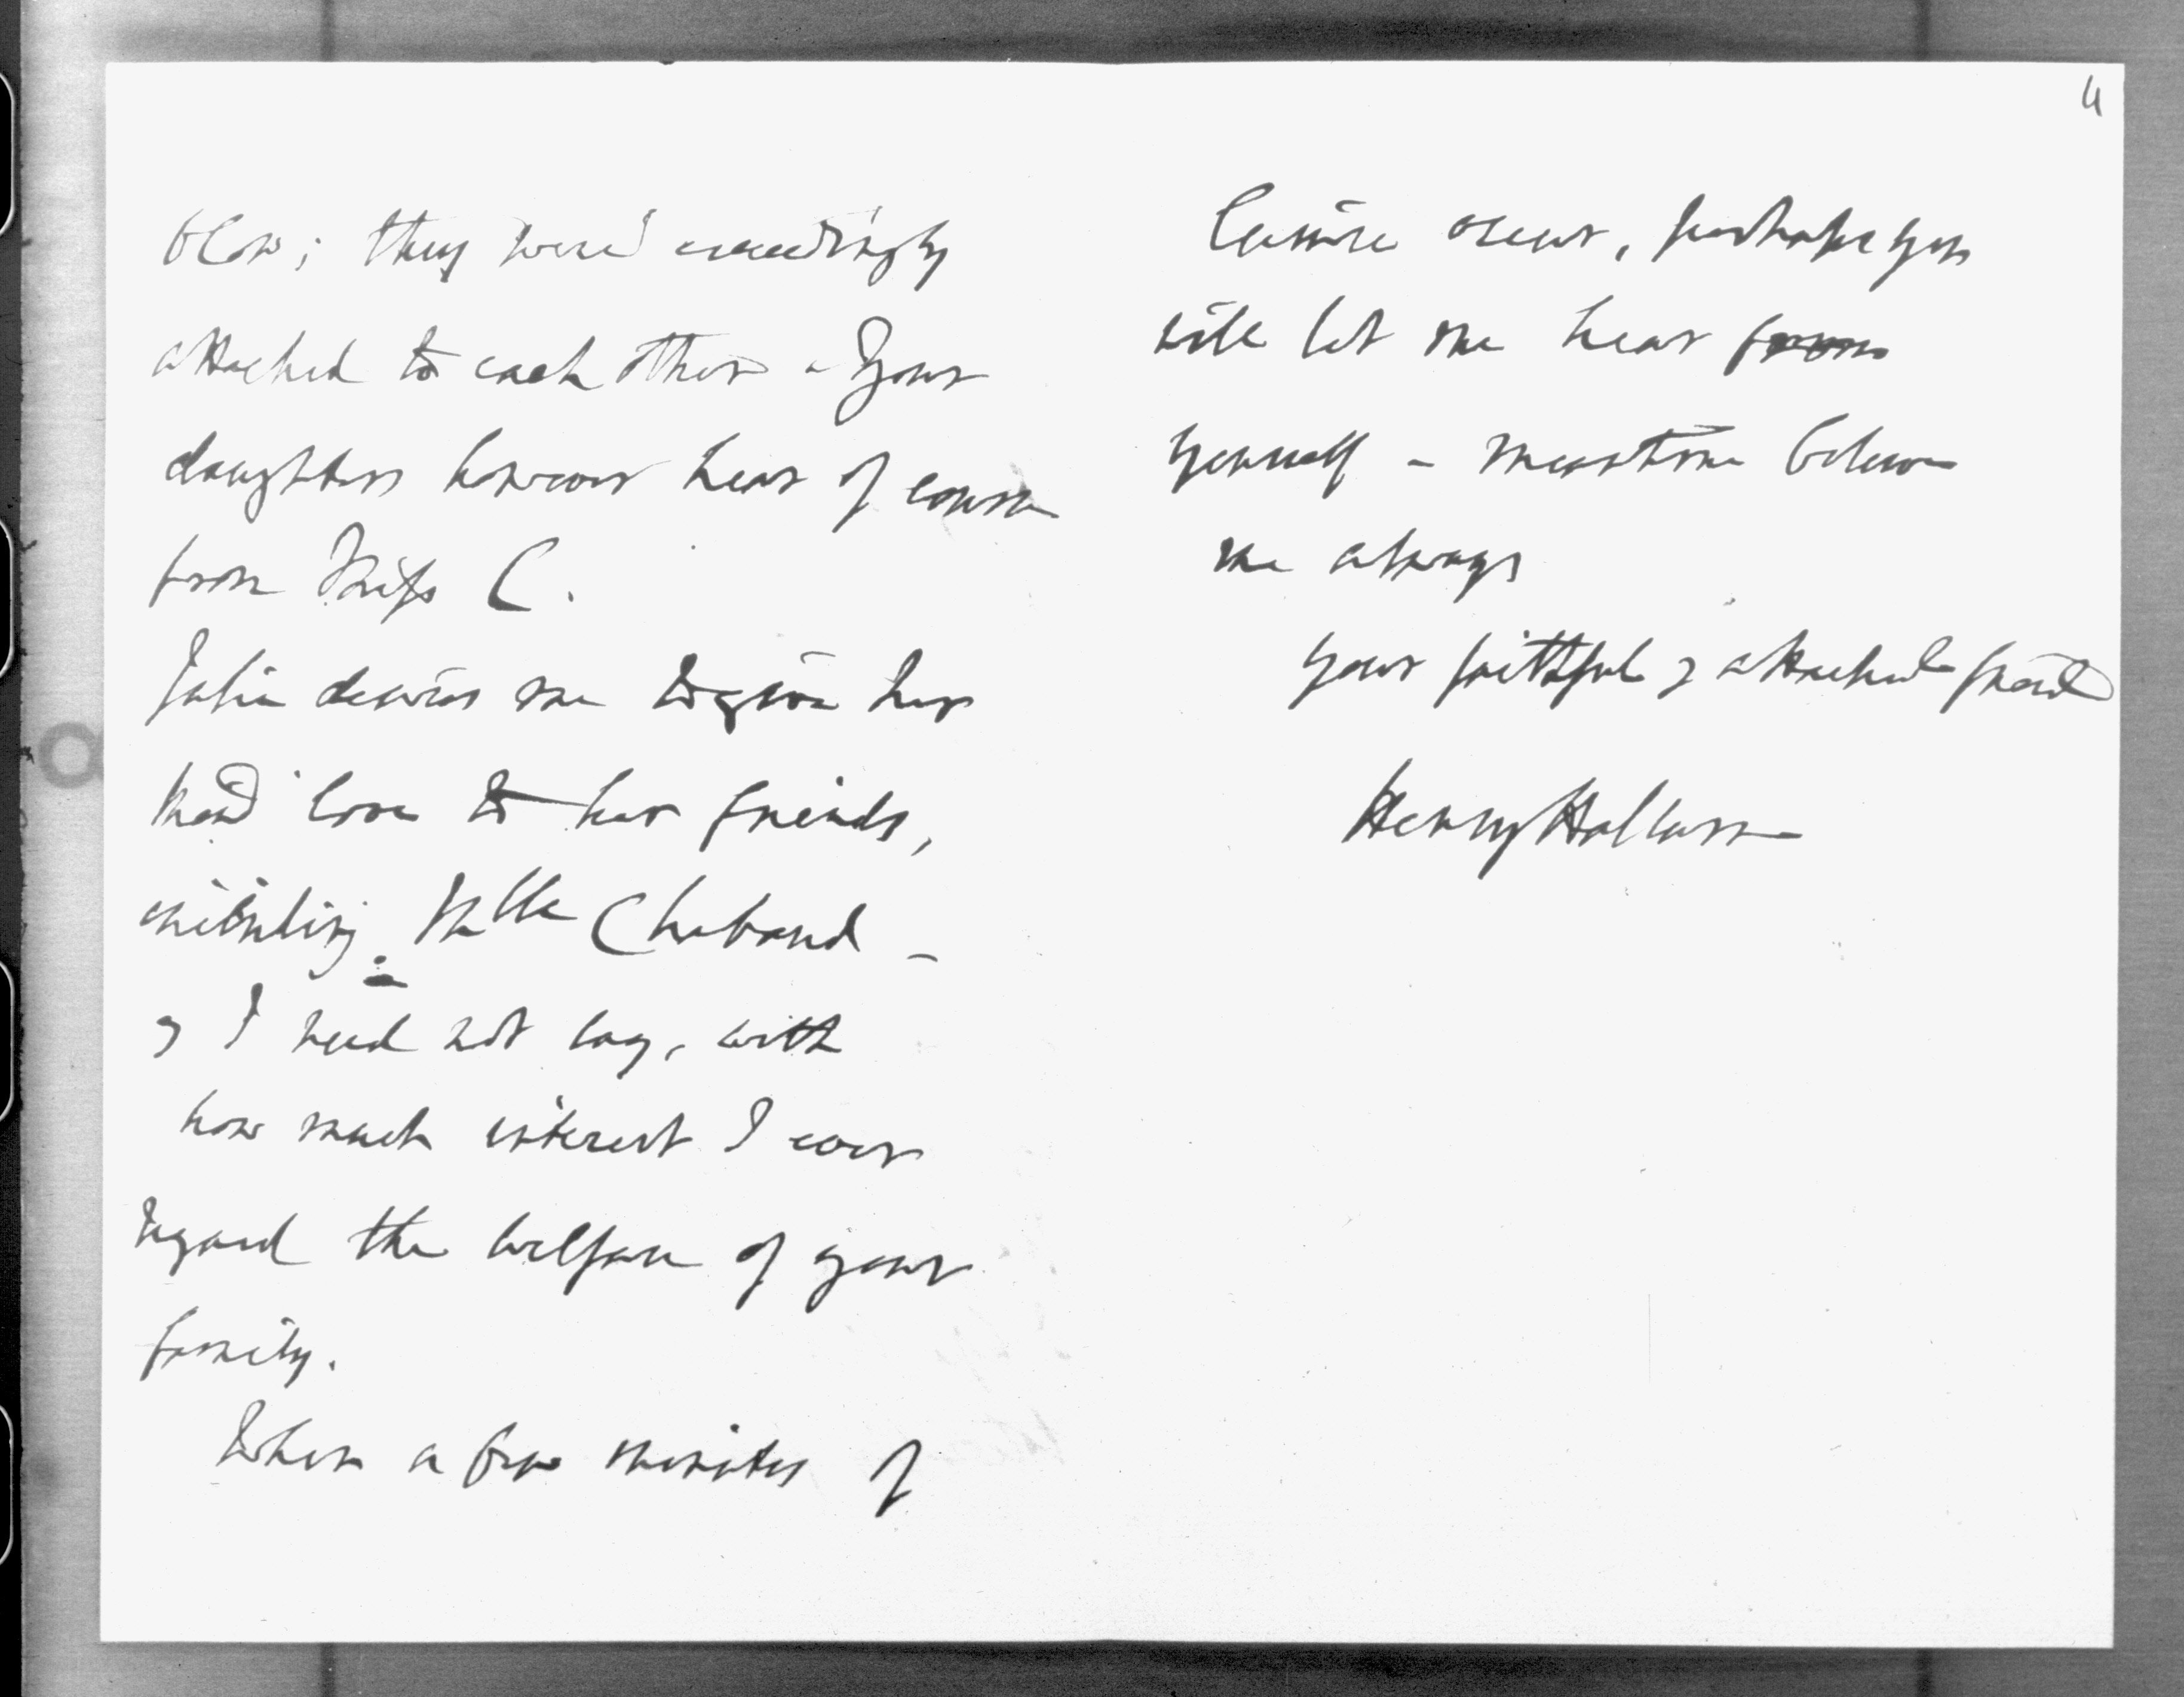 blow; they were exceedingly
attached to each other - Your
daughters however hear of course
from Miss C.
Julia desires me to give her
kind love to her friends,
including Mlle Chabaud -
& I need not say, with
how much interest I ever
regard the welfare of your
family.
When a few minutes of
4
leisure occur, perhaps you
will let me hear from
yourself - meantime believe
me always
your faithful & attached friend
Henry Hallam